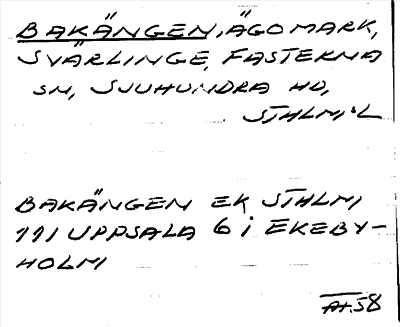 BAKÄNGEN, ÄGOMARK,
SVÄRLINGE, FASTERNA
SN, SJUHUNDRA HD,
STHLM:L
BAKÄNGEN EK STHLM
111 UPPSALA 6 i EKEBY-
HOLM
58